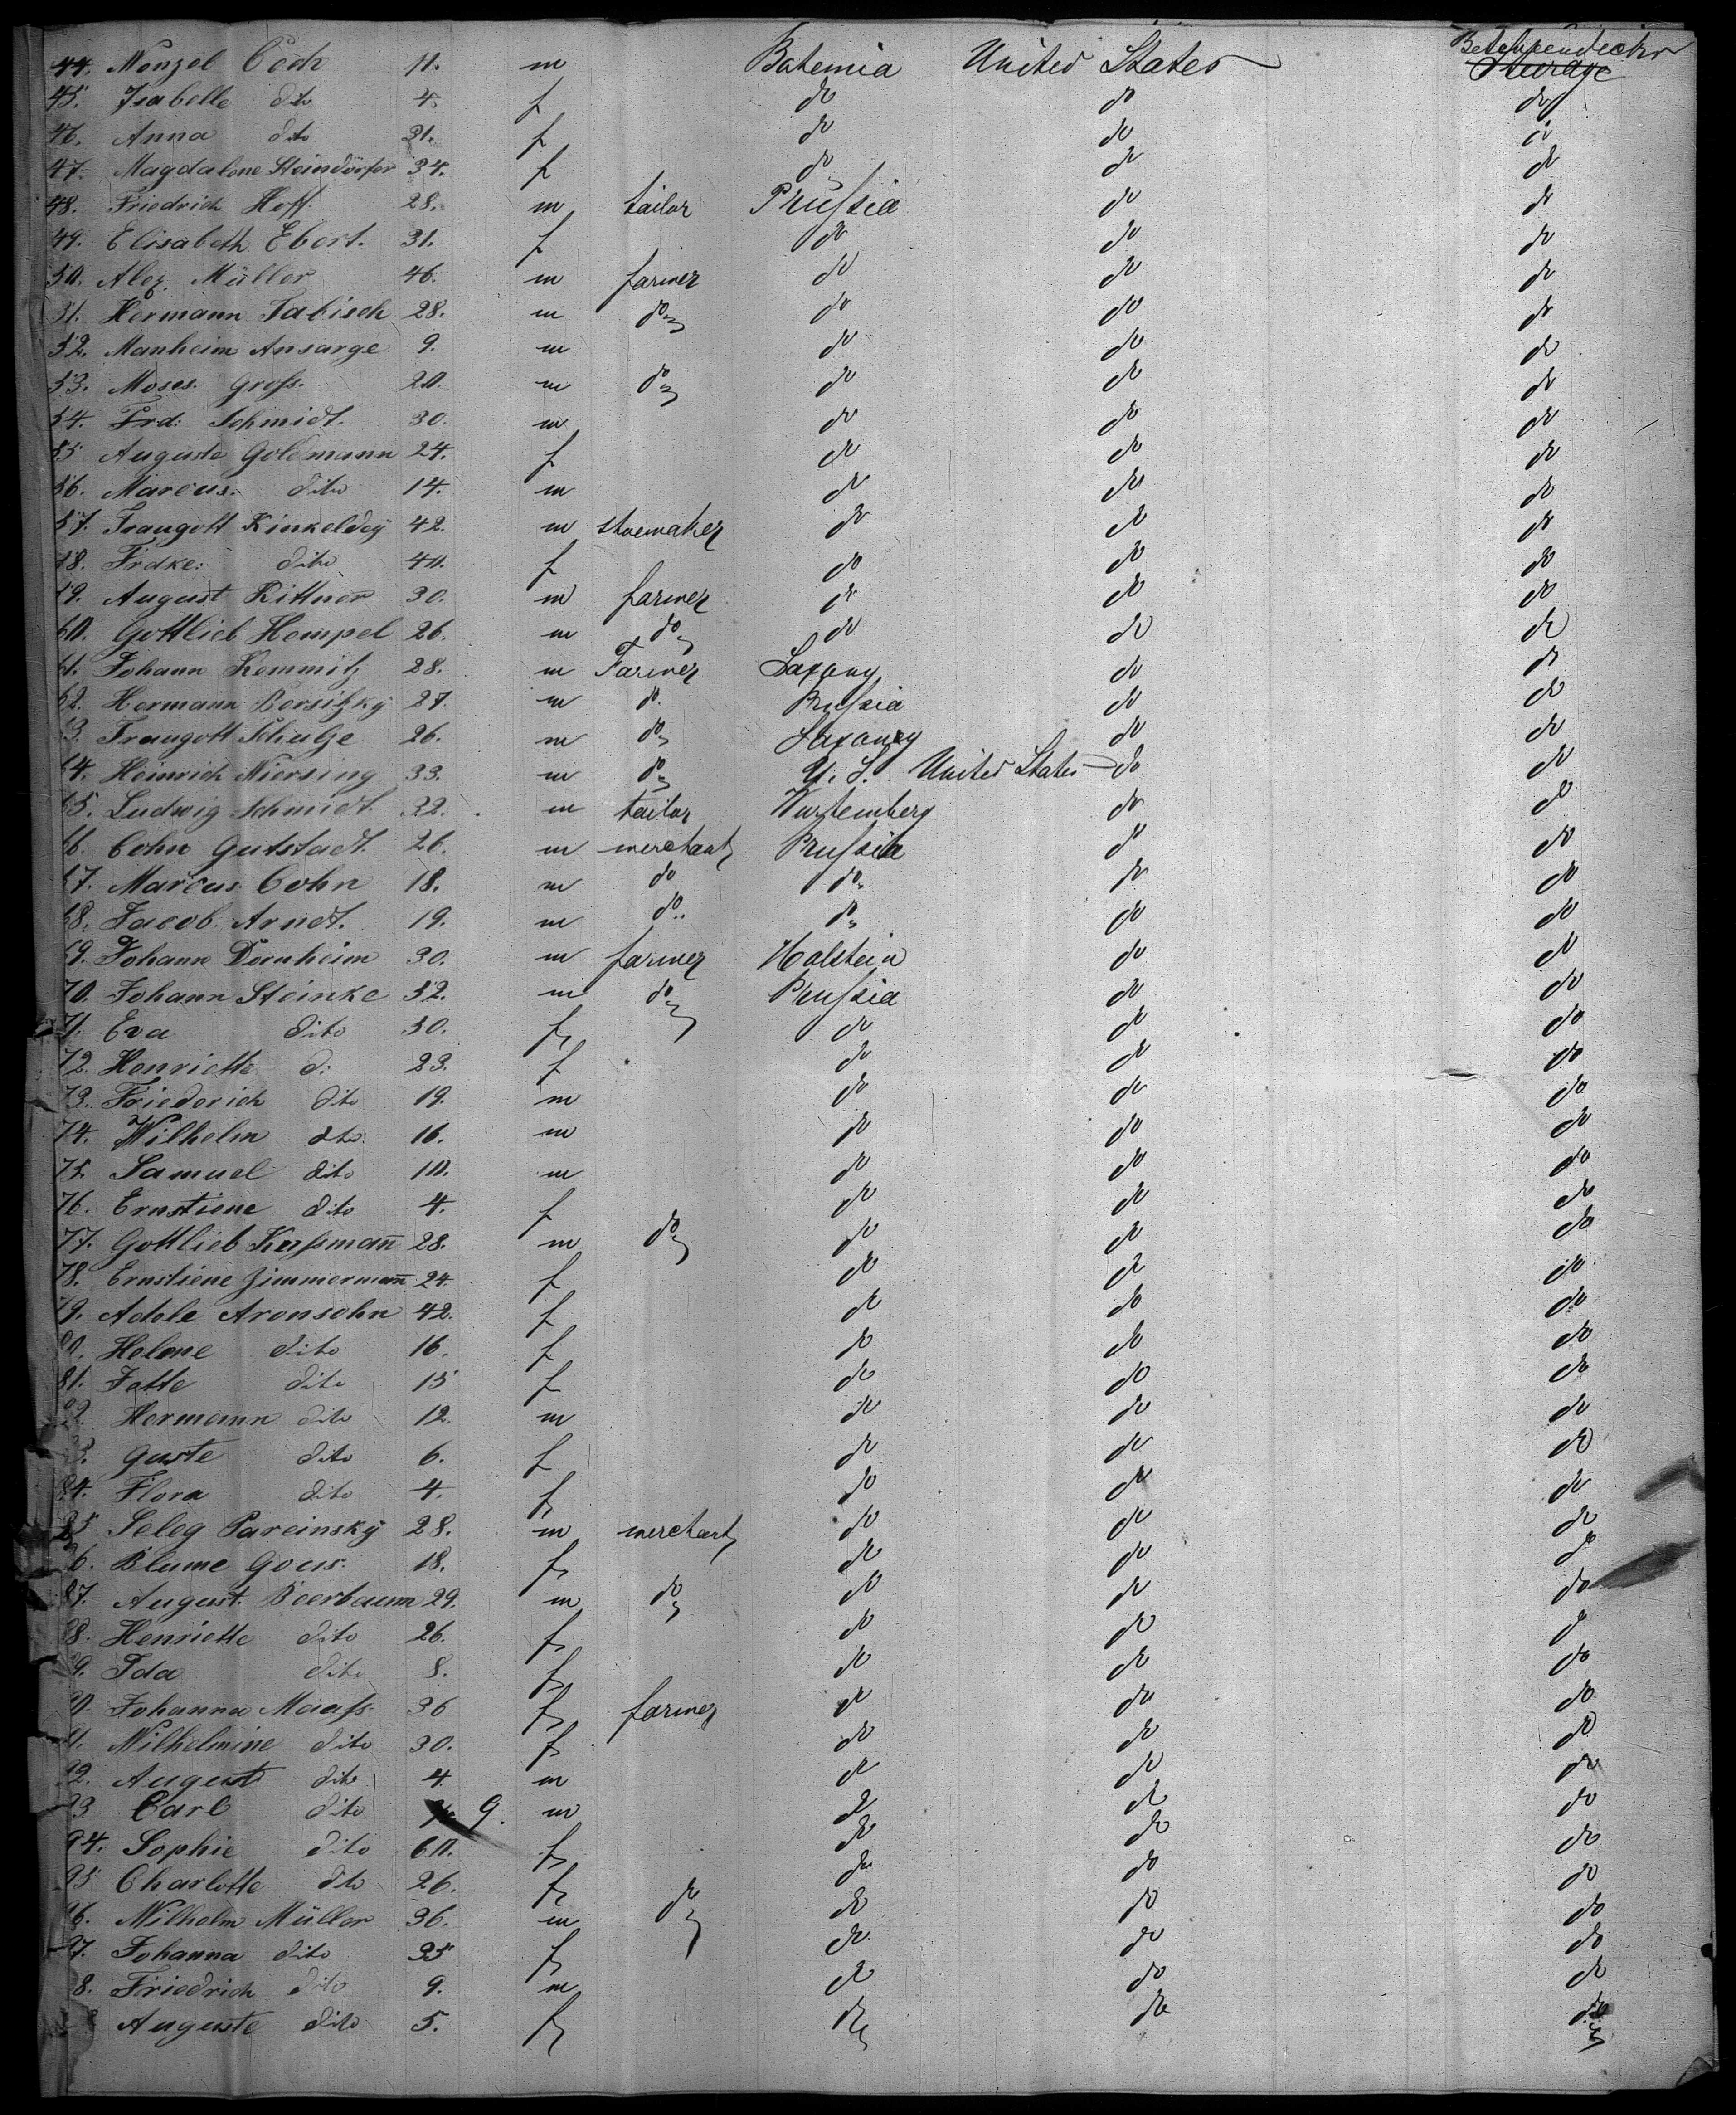 44. Wenzel Cech 11. m Bohemia United States Betweendecks Steerage
45. Isabelle dito 4. f do do do
46. Anna dito 31. f do do do
47. Magdalene Steindörfer 34. f do do do
48. Friedrich Hoff. 28. m tailor Prussia do do
49. Elisabeth Ebert. 31. f do do do
50. Alex. Müller 46. m farmer do do do
51. Hermann Tabisch 28. m do do do do
52. Manheim Ansarge 9. m do do do
53. Moses. Gross. 20. m do do do do
54. Frd: Schmidt. 30. m do do do
55 Auguste Goldmann 24. f do do do
56. Marcus. dito 14. m do do do
57. Traugott Kinkeldey 42. m shoemaker do do do
58. Frdke: dito 40. f do do do
59. August Rittner 30. m farmer do do do
60. Gottlieb Hempel 26. m do do do do
61. Johann Kemmitz 28. m Farmer Saxony do do
62. Hermann Borsitzky 27. m do. Prussia do do
63. Traugott Schulze 26. m do Saxoney do do
64. Heinrich Niersing 33. m do U. S. United States do do
65. Ludwig Schmidt. 32. m tailor Wurtemberg do do
66. Cohn Gutstadt. 26. m merchant Prussia do do
67. Marcus Cohn 18. m do do do do
68. Jacob Arndt. 19. m do do do do
69. Johann Dornheim 30. m farmer Holstein do do
70. Johann Steinke 52. m do Prussia do do
71. Eva dito 50. f do do do
72. Henriette d: 23. f do do do
73. Friederich dito 19. m do do do
74. Wilhelm dto. 16. m do do do
75. Samuel dito 10. m do do do
76. Ernstiene dito 4. f do do do
77. Gottlieb Kussman̄ 28. m do do do do
78. Ernstiene Zimmerman̄ 24. f do do do
79. Adele Aronsohn 42. f do do do
80. Helene dito 16. f do do do
81. Jette dito 15 f do do do
82. Hermann dito 12. m do do do
83. Guste dito 6. f do do do
84. Flora dito 4. f do do do
85 Seleg Pareinsky 28. m merchant do do do
86. Blume Gous. 18. f do do do
87. August. Beerbaum 29. m do do do do
88. Henriette dito 26. f do do do
89. Ida dito 8. f do do do
90. Johanna Maass. 36 f farmer do do do
91. Wilhelmine dito 30. f do do do
92. August dito 4. m do do do
93 Carl dito 9. m do do do
94. Sophie dito 60. f do do do
95 Charlotte dto 26. f do do do
96. Wilhelm Müller 36. m do do do do
97. Johanna dito 35 f do do do
98. Friedrich dito 9. m do do do
Auguste dito 5. f do do do